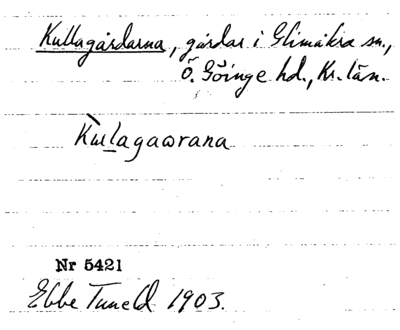 Kullagårdarna, gårdar i Glimåkra sn.,
Ö. Göinge hd., Kr. län.
Kùlagaωrana
Nr 5421
Ebbe Tuneld 1903.